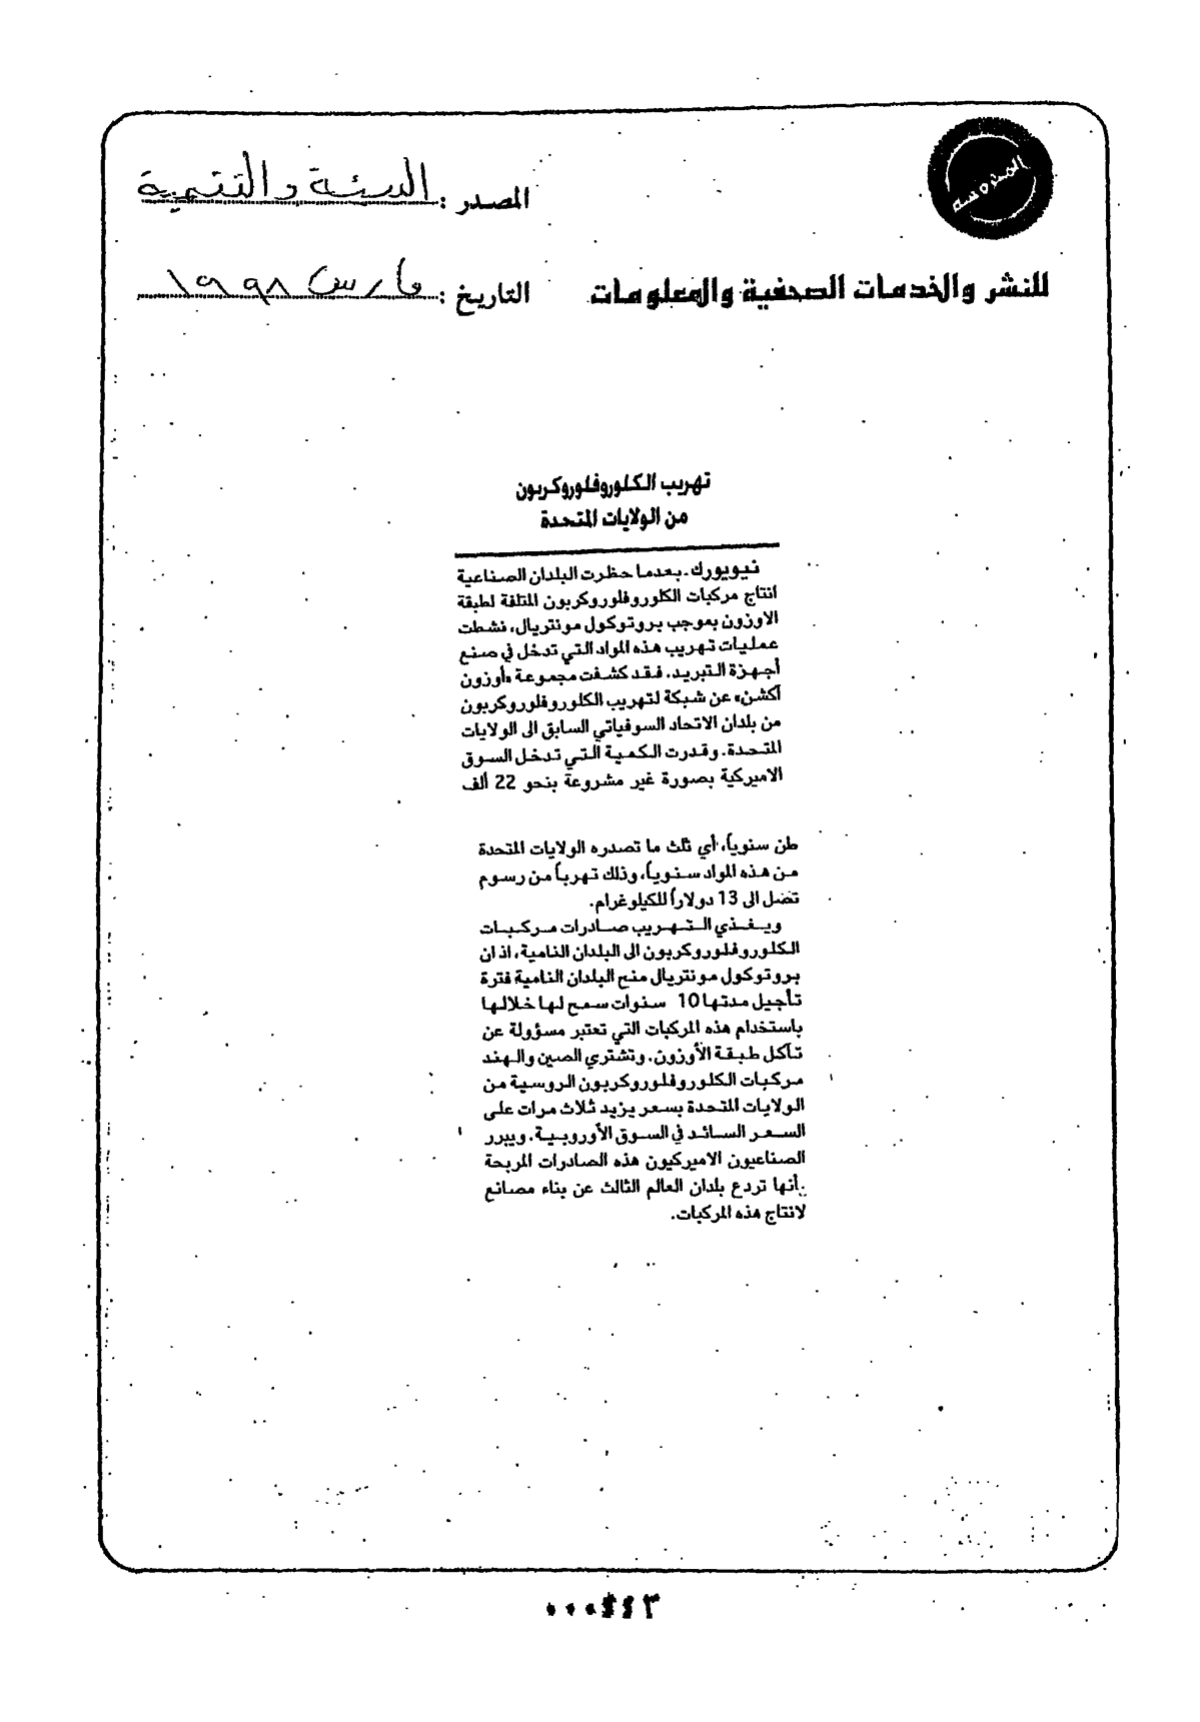 المصدر : البيئة والتنمية
للنشر والخدمات الصحفية والمعلومات
التاريخ : مارس ١٩٩٨
تهريب الكلوروفلوروكربون
من الولايات المتحدة
نيويورك. بعدما حظرت البلدان الصناعية
انتاج مركبات الكلوروفلوروكربون المتلفة لطبقة
الاوزون بموجب بروتوكول مونتريال، نشطت
عمليات تهريب هذه المواد التي تدخل في صنع
أجهزة التبريد. فقد كشفت مجموعة «أوزون
آكشن» عن شبكة لتهريب الكلوروفلوروكربون
من بلدان الاتحاد السوفياتي السابق الى الولايات
المتحدة. وقدرت الكمية التي تدخل السوق
الاميركية بصورة غير مشروعة بنحو 22 ألف
طن سنوياً، أي ثلث ما تصدره الولايات المتحدة
من هذه المواد سنوياً، وذلك تهرباً من رسوم
تصل الى 13 دولاراً للكيلوغرام.
ويغذي التهريب صادرات مركبات
الكلوروفلوروكربون الى البلدان النامية، اذ ان
بروتوكول مونتريال منح البلدان النامية فترة
تأجيل مدتها 10 سنوات سمح لها خلالها
باستخدام هذه المركبات التي تعتبر مسؤولة عن
تآكل طبقة الأوزون. وتشتري الصين والهند
مركبات الكلوروفلوروكربون الروسية من
الولايات المتحدة بسعر يزيد ثلاث مرات على
السعر السائد في السوق الأوروبية. ويبرر
الصناعيون الاميركيون هذه الصادرات المربحة
بأنها تردع بلدان العالم الثالث عن بناء مصانع
لانتاج هذه المركبات.